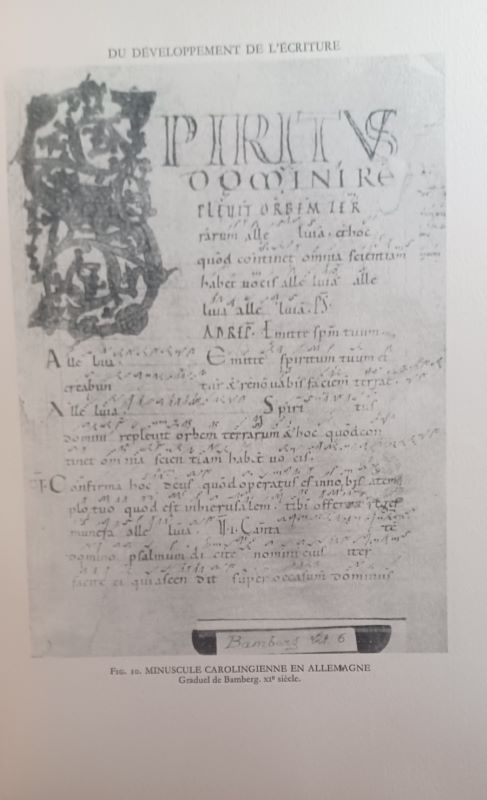 DU DÉVELOPPEMENT DE L'ÉCRITURE
SPIRITVS
DOMINI RE
PLEUIT ORBEM TER
rarum alle luia. et hoc
quod continet omnia scientiam
habet uocis alle luia alle
luia alle luia. PS.
AD REP. Emitte spm tuum
Alle luia. Emitte spiritum tuum et
creabun tur & renouabis faciem terrae.
Alle luia. Spiri tus
domini repleuit orbem terrarum & hoc quod con
tinet omnia scien tiam habet uo cis.
Confirma hoc deus quod operatus es in no bis a tem
plo tuo quod est in hierusalem. tibi offerent reges
munera alle luia. Canta te
domino psalmum di cite nomini eius iter
facite ei qui ascen dit super occasum dominus
Bamberg Lit. 6
FIG. 10. MINUSCULE CAROLINGIENNE EN ALLEMAGNE
Graduel de Bamberg. XIe siècle.